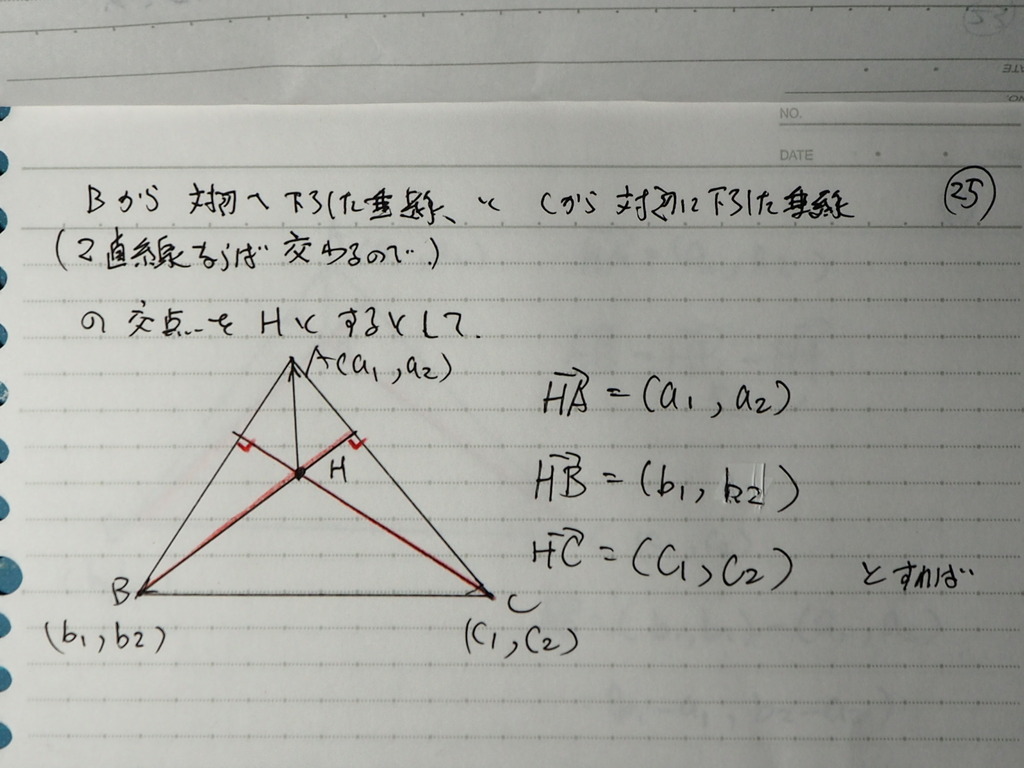 NO.
DATE
㉕
Bから 対辺へ下ろした垂線、と Cから対辺に下ろした垂線
(2直線ならば 交わるので、)
の 交点..を Hと するとして、
A(a1, a2)
H
B
(b1, b2)
C
(C1, C2)
HA = (a1, a2)
HB = (b1, b2)
HC = (C1, C2) とすれば